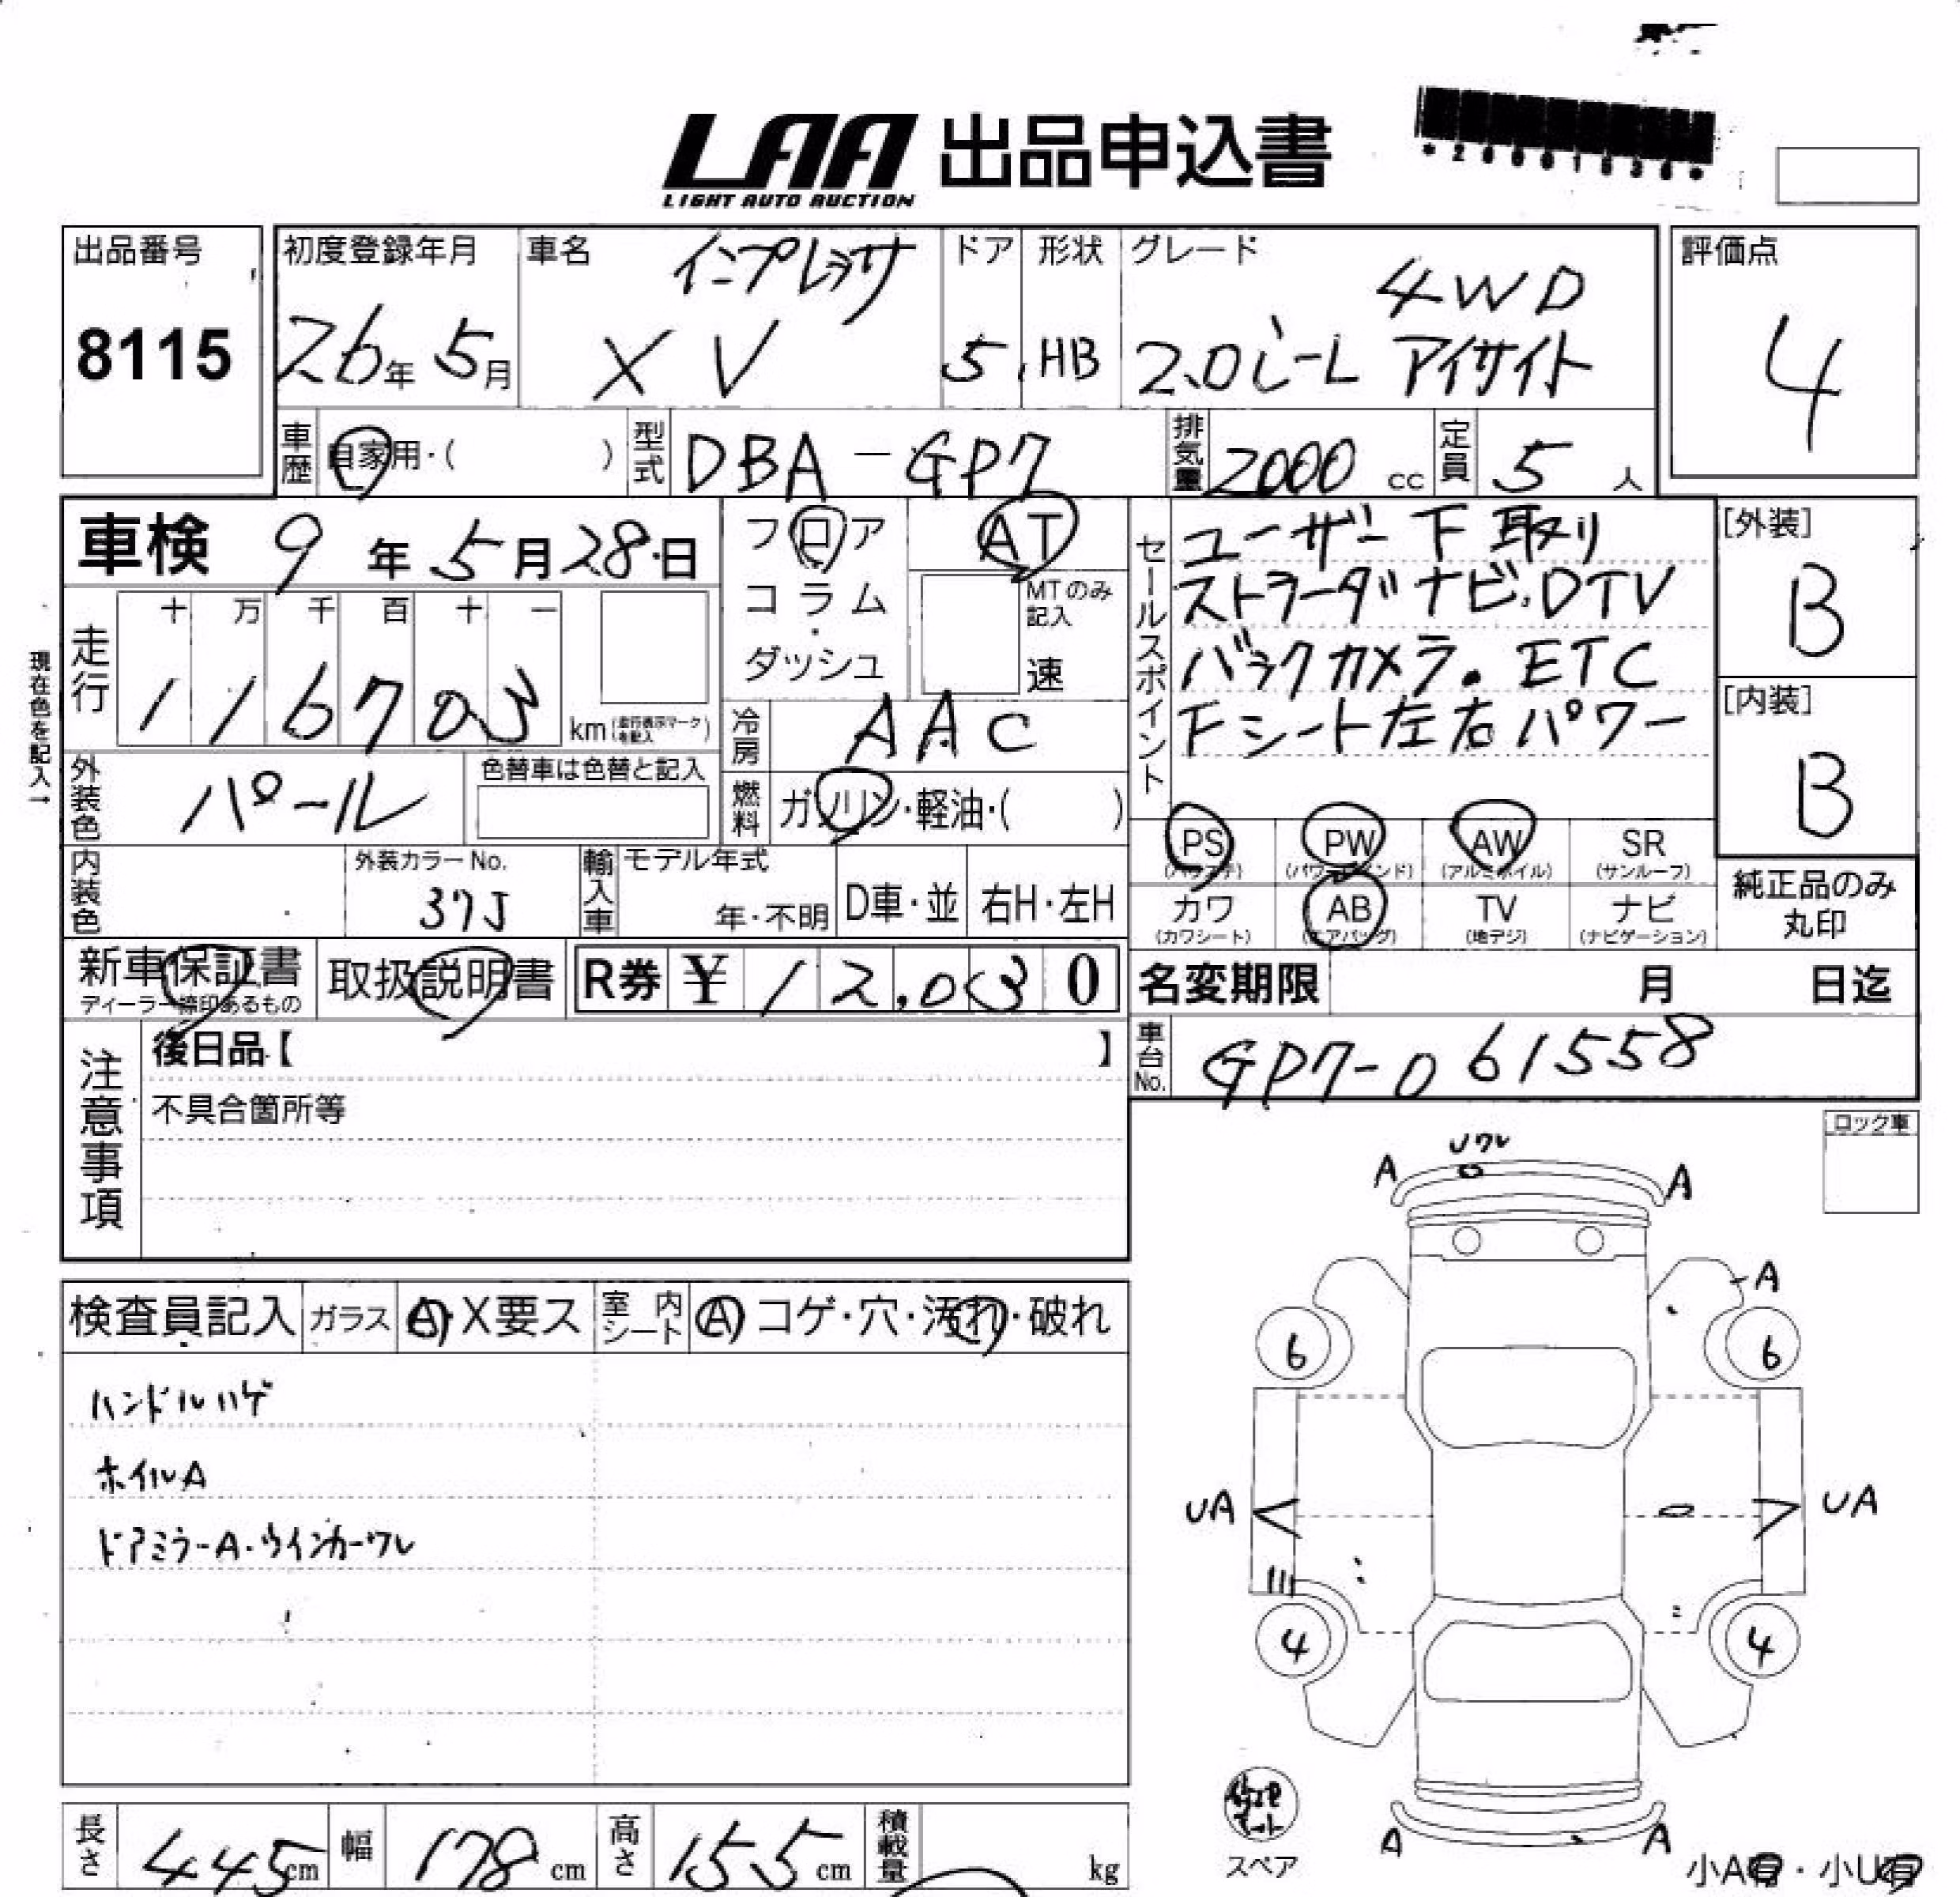 LAA 出品申込書
LIGHT AUTO AUCTION
出品番号
8115
初度登録年月
26年 5月
車名
インプレッサ
XV
ドア
5
形状
HB
グレード
4WD
2.0i-L アイサイト
評価点
4
車歴
自家用・( )
型式
DBA-GP7
排気量
2000 cc
定員
5 人
車検 9年 5月 28日
フロア
コラム
・
ダッシュ
AT
MTのみ
記入
速
セールスポイント
ユーザー下取り
ストラーダナビ.DTV
バックカメラ。ETC
Fシート左右パワー
[外装]
B
[内装]
B
現在色を記入→
走行
十 万 千 百 十 一
116703
km(走行表示マークを記入)
冷房
AAC
外装色
パール
色替車は色替と記入
燃料
ガソリン・軽油・( )
PS
(パワステ)
PW
(パワーウインド)
AW
(アルミホイル)
SR
(サンルーフ)
カワ
(カワシート)
AB
(エアバッグ)
TV
(地デジ)
ナビ
(ナビゲーション)
純正品のみ
丸印
内装色
外装カラーNo.
37J
輸入車
モデル年式
年・不明
D車・並
右H・左H
新車保証書
ディーラー締印あるもの
取扱説明書
R券 ¥ 12,030
名変期限 月 日迄
車台No.
GP7-061558
注意事項
後日品【 】
不具合箇所等
ロック車
検査員記入
ガラス
A・X要ス
室内シート
A コゲ・穴・汚れ・破れ
ハンドルハゲ
ホイルA
ドアミラーA・ウインカーワレ
Uワレ
A
A
A
6
6
UA
UA
4
4
A
A
スペア
小A有・小U有
長さ
445cm
幅
178cm
高さ
155cm
積載量
kg